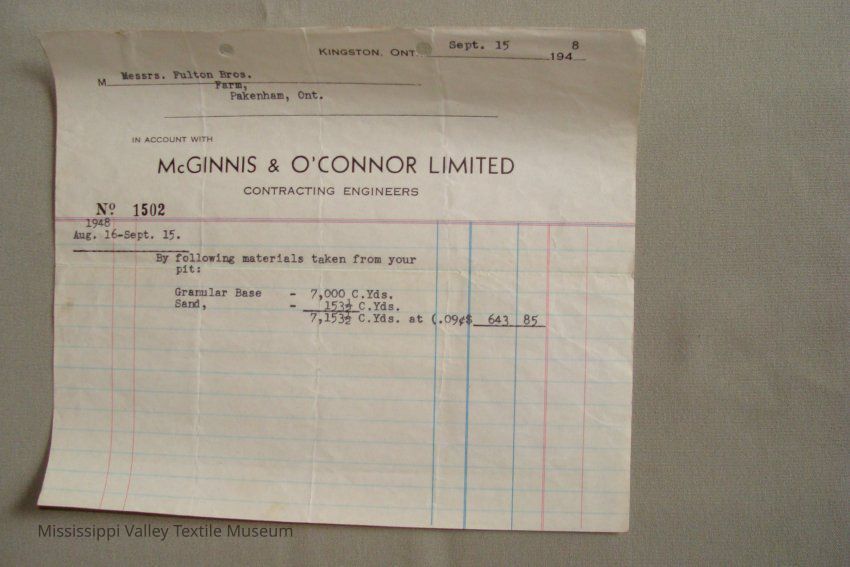 KINGSTON, ONT. Sept. 15 1948
M Messrs. Fulton Bros.
Farm,
Pakenham, Ont.
IN ACCOUNT WITH
McGINNIS & O'CONNOR LIMITED
CONTRACTING ENGINEERS
Nº 1502
1948
Aug. 16-Sept. 15.
By following materials taken from your
pit:
Granular Base - 7,000 C.Yds.
Sand, - 153½ C.Yds.
7,153½ C.Yds. at (.09¢$ 643 85
Mississippi Valley Textile Museum